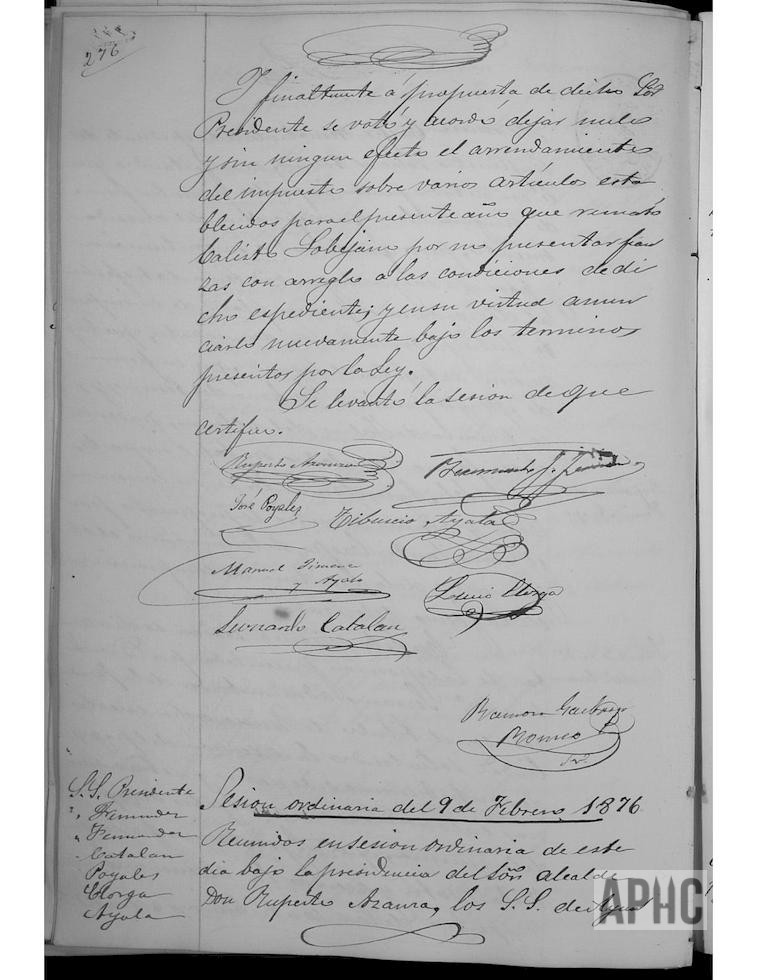 276
Y finalmente á propuesta de dicho Sor
Presidente se votó y acordó, dejar nulo
y sin ningun efecto el arrendamiento
del impuesto sobre varios artículos esta
blecidos para el presente año que remató
Calisto Lobejano por no presentar fian
zas con arreglo a las condiciones de di
cho espediente; y en su virtud anun
ciarlo nuevamente bajo los terminos
presentos por la Ley.
Se levantó la sesion de que
certifico.
Ruperto Azanza
José Poyales
Tiburcio Ayala
Manuel Jimenez
y Ayala
Lucio Llorga
Leonardo Catalan
Ramon
Romeo
S.S. Presidente
" Fernandez
Catalan
Poyales
Llorga
Ayala
Sesion ordinaria del 9 de Febrero 1876
Reunidos en sesion ordinaria de este
dia bajo la presidencia del Señor alcalde
Don Ruperto Azanza, los S.S. de Ayun
APHC